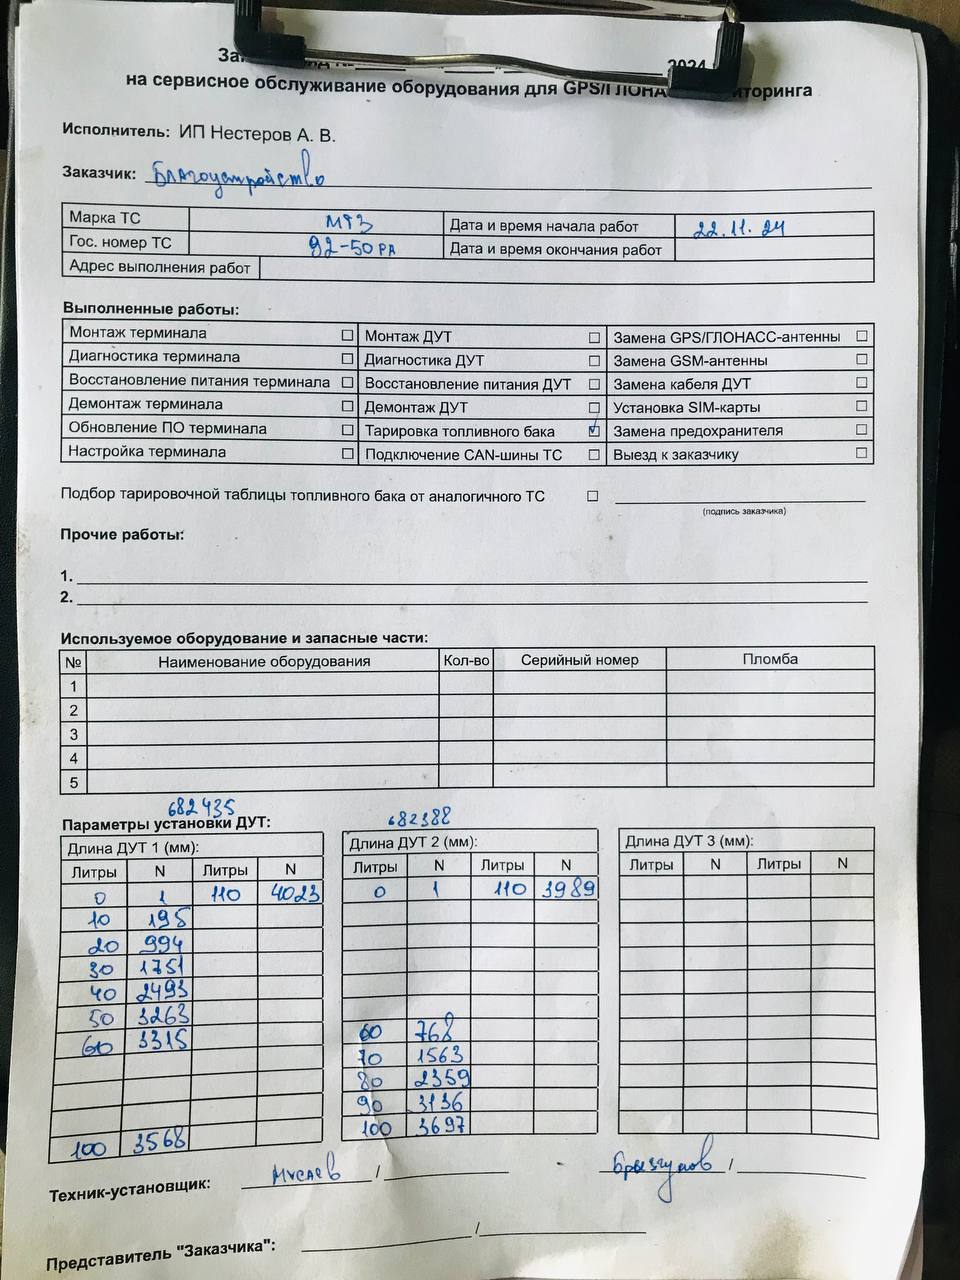 2024
на сервисное обслуживание оборудования для GPS/ГЛОНА иторинга
Исполнитель: ИП Нестеров А. В.
Заказчик: Благоустройство
Марка ТС МТЗ Дата и время начала работ 22.11.24
Гос. номер ТС 92-50 РА Дата и время окончания работ
Адрес выполнения работ
Выполненные работы:
Монтаж терминала ☐ Монтаж ДУТ ☐ Замена GPS/ГЛОНАСС-антенны ☐
Диагностика терминала ☐ Диагностика ДУТ ☐ Замена GSM-антенны ☐
Восстановление питания терминала ☐ Восстановление питания ДУТ ☐ Замена кабеля ДУТ ☐
Демонтаж терминала ☐ Демонтаж ДУТ ☐ Установка SIM-карты ☐
Обновление ПО терминала ☐ Тарировка топливного бака ☑ Замена предохранителя ☐
Настройка терминала ☐ Подключение CAN-шины ТС ☐ Выезд к заказчику ☐
Подбор тарировочной таблицы топливного бака от аналогичного ТС ☐
(подпись заказчика)
Прочие работы:
1.
2.
Используемое оборудование и запасные части:
№ Наименование оборудования Кол-во Серийный номер Пломба
1
2
3
4
5
682435 682388
Параметры установки ДУТ:
Длина ДУТ 1 (мм): Длина ДУТ 2 (мм): Длина ДУТ 3 (мм):
Литры N Литры N Литры N Литры N Литры N Литры N
0 1 110 4023 0 1 110 3989
10 195
20 994
30 1751
40 2493
50 3263
60 3315 60 768
70 1563
80 2359
90 3136
100 3568 100 3697
Техник-установщик: Мусаев / Брызгунов /
Представитель "Заказчика": /